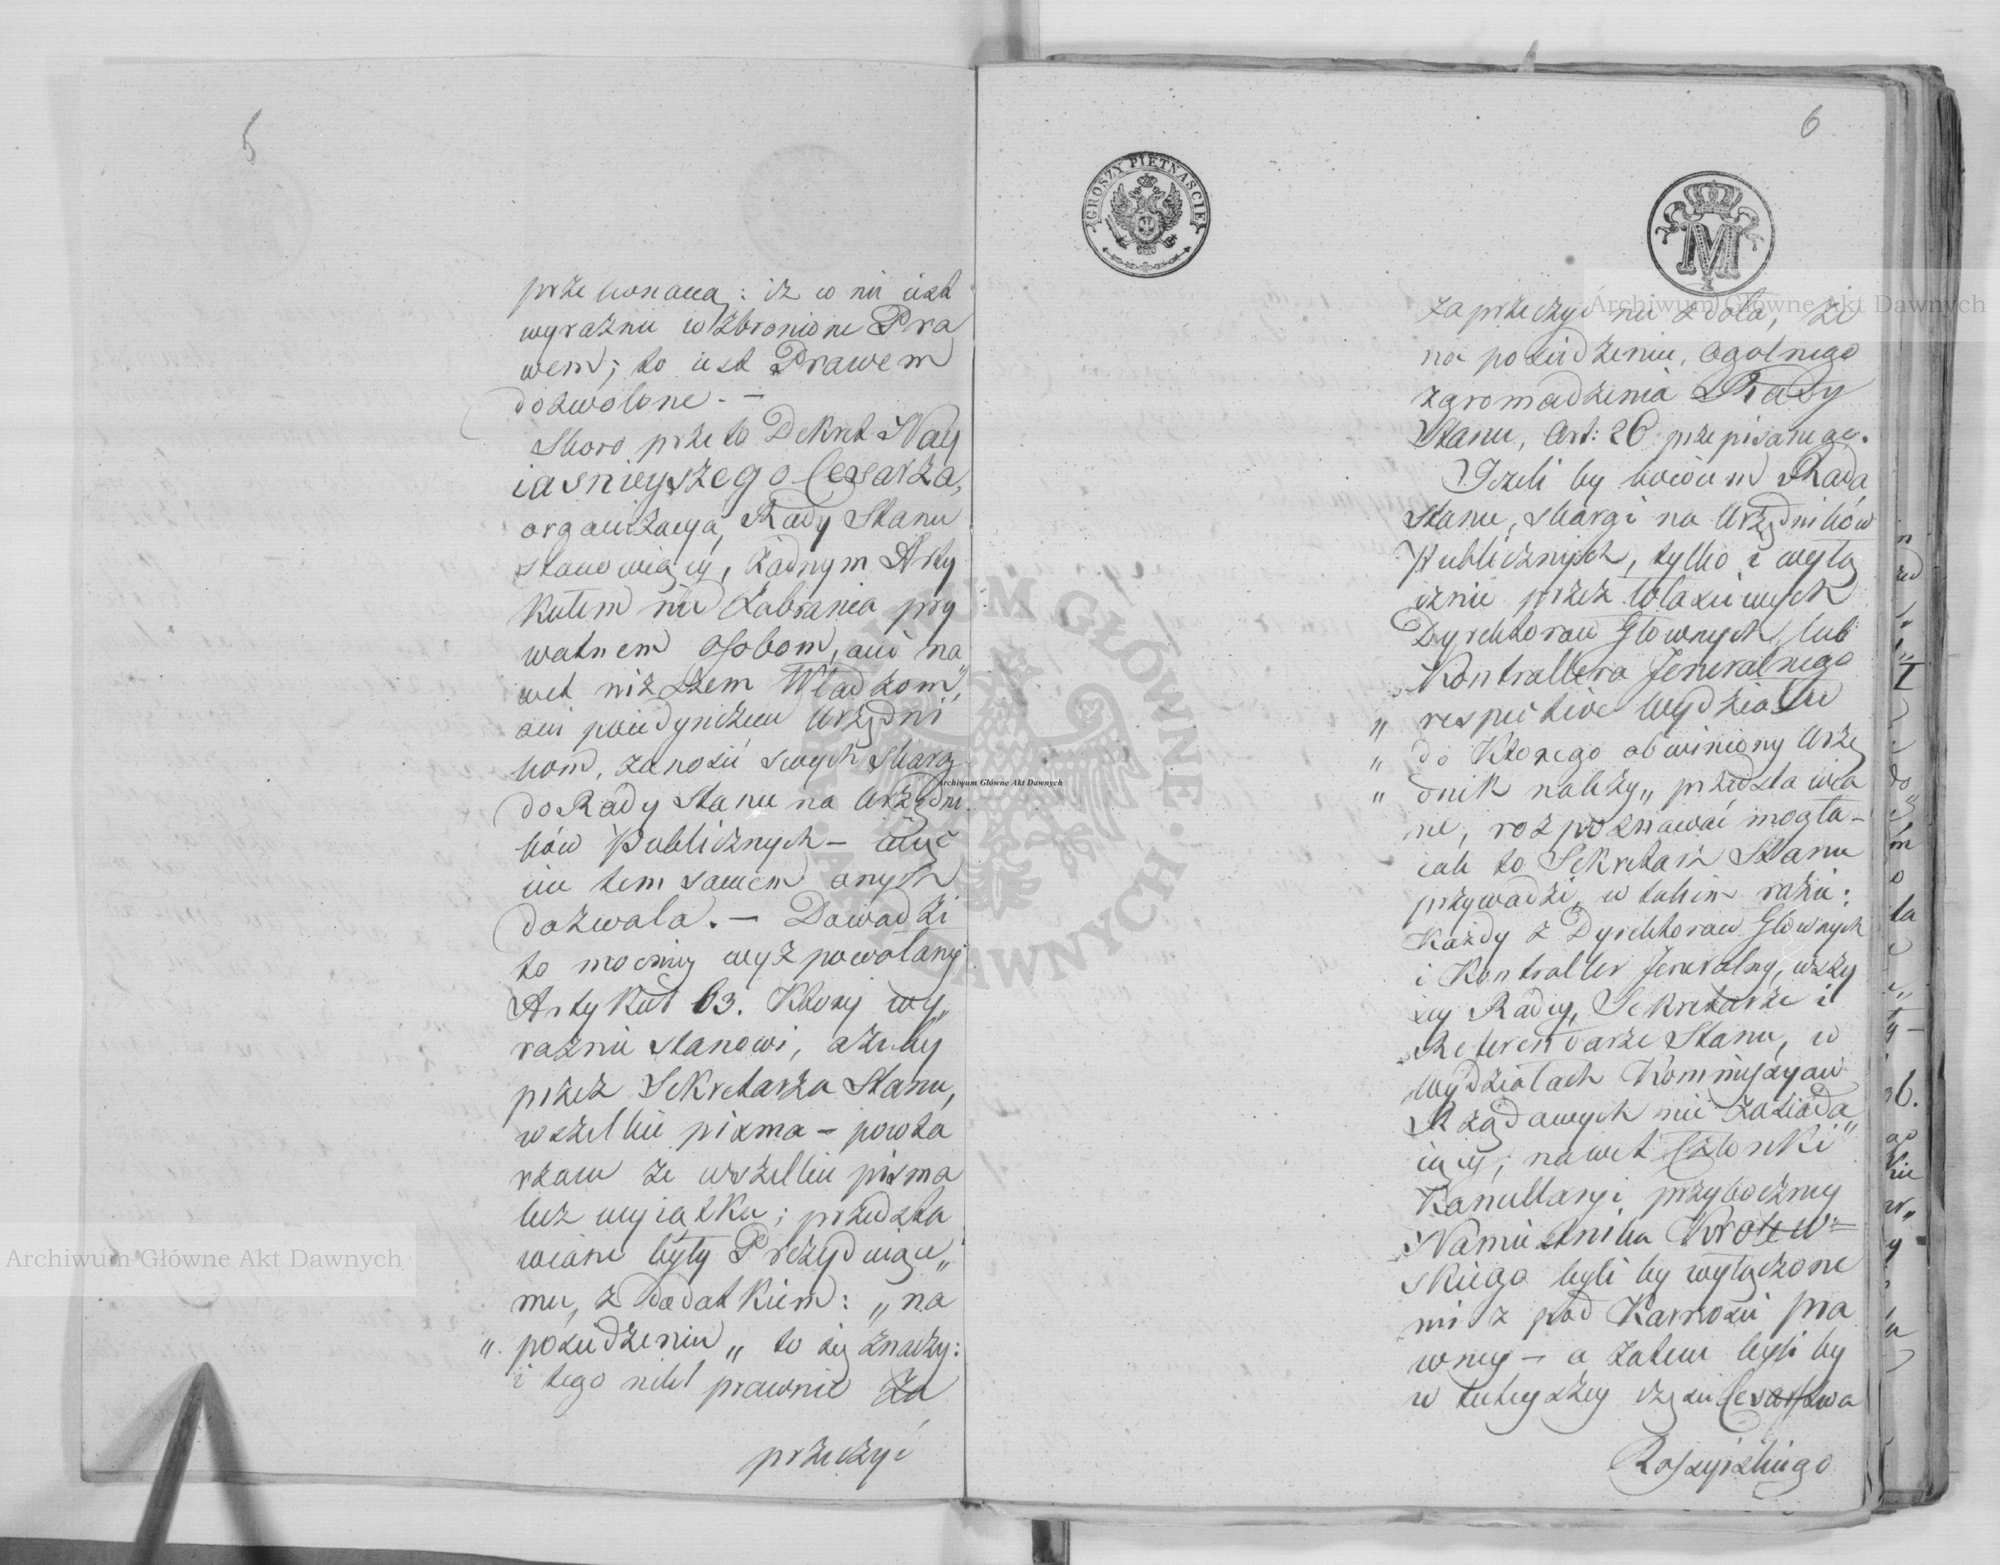 5
przekonaną: iż co nie iest
wyraźnie wzbronione Pra
wem; to iest Prawem
dozwolone. —
Skoro przeto Dekret Nay
iaśnieyszego Cesarza,
organizacyą Rady Stanu
stanowiący, żadnym Arty
kułem nie zabrania pry
watnem osobom, ani na„
wet niższem Władzom,
ani poiedyńczem Urzędni
kom, zanosić swych skarg
do Rady Stanu na Urzędni
ków Publicznych — więc
im tem samem onych
dozwala. — Dowodzi
to mocniey wyż powołany
Artykuł 63. Który wy„
raźnie stanowi, ażeby
przez Sekretarza Stanu,
wszelkie pisma — powta
rzam że wszelkie pisma
bez wyiątku; przedsta
wiane były Prezyduiące„
mu, z dodatkiem: „na
„ posiedzeniu„ to się znaczy:
i tego nikt prawnie za
przeczyć
6
GROSZY PIETNAŚCIE
M
zaprzeczyć nie zdoła, że
na posiedzeniu, Ogolnego
zgromadzenia Rady
Stanu, Art: 26 przepisanego.
Jeżeli by bowiem Rada
Stanu, skargi na Urzędników
Publicznych, tylko i wyłą
cznie przez Właściwych
Dyrektorow Głownych, lub
Kontrollera Jeneralnego
„ respective Wydziału
„ do Ktorego obwiniony Urzę
„ dnik należy„ przedstawia
ne, rozpoznawać mogła —
iak to Sekretarz Stanu
przywodzi, w takim razie:
Każdy z Dyrektorow Głownych
i Kontroller Jeneralny, wszy
scy Radcy, Sekretarze i
Referendarze Stanu, w
Wydziałach Kommissyow
Rządowych nie zasiada„
iący; nawet Członki
Kancellaryi przyboczney
Namiestnika Krolew=
skiego byli by wyłączone
mi z pod Karności pra
wney — a zatem byli by
w tuteyszey części Cesarstwa
Rossyiskiego
Archiwum Główne Akt Dawnych
Archiwum Główne Akt Dawnych
Archiwum Główne Akt Dawnych
ARCHIWUM GŁÓWNE AKT DAWNYCH